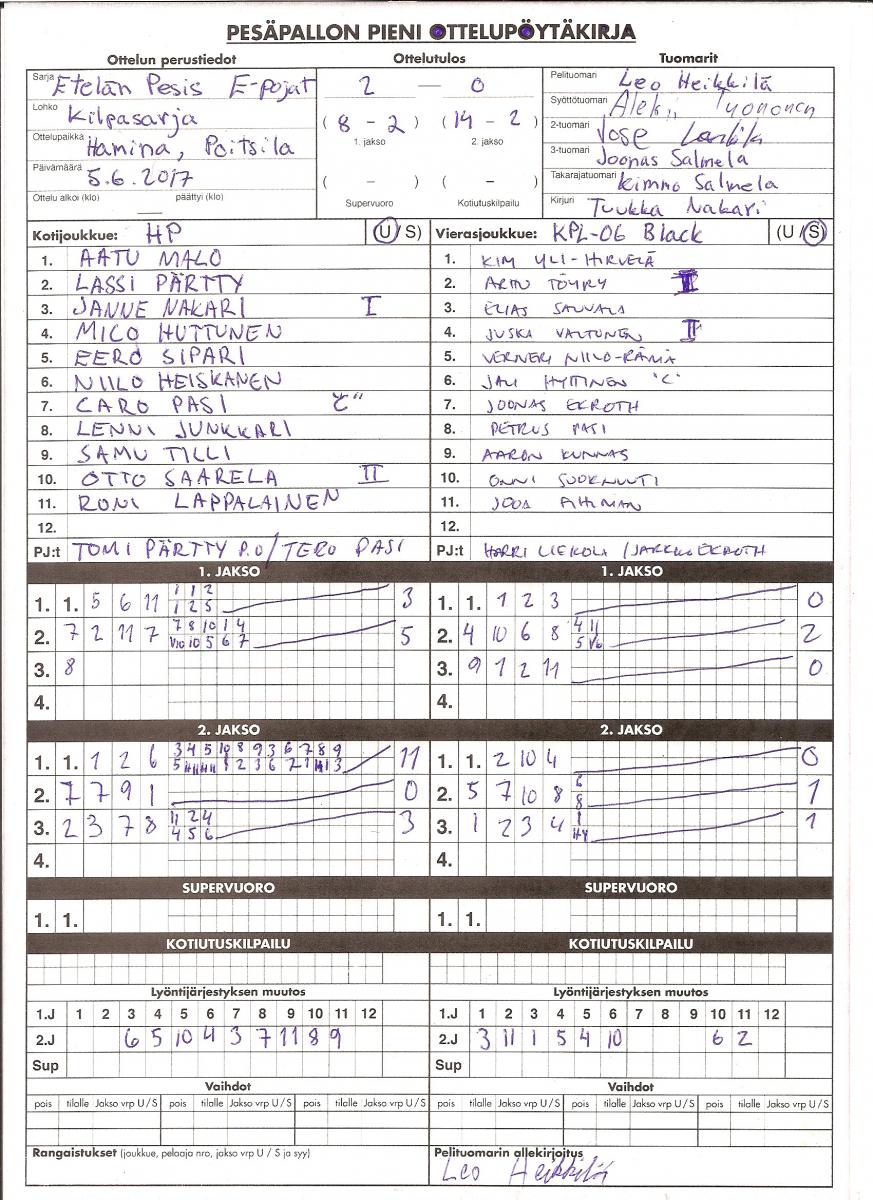 PESÄPALLON PIENI OTTELUPÖYTÄKIRJA
Ottelun perustiedot Ottelutulos Tuomarit
Sarja Etelän Pesis E-pojat
Lohko Kilpasarja
Ottelupaikka Hamina, Poitsila
Päivämäärä 5.6.2017
Ottelu alkoi (klo) — päättyi (klo)
2 — 0
(8 - 2) (14 - 2)
1. jakso 2. jakso
( - ) ( - )
Supervuoro Kotiutuskilpailu
Pelituomari Leo Heikkilä
Syöttötuomari Aleksi
2-tuomari Jose
3-tuomari Joonas Salmela
Takarajatuomari Kimmo Salmela
Kirjuri Tuukka Nakari
Kotijoukkue: HP (U/S)
1. AATU MALO
2. LASSI PÄRTTY
3. JANNE NAKARI I
4. MICO HUTTUNEN
5. EERO SIPARI
6. NIILO HEISKANEN
7. CARO PASI "C"
8. LENNI JUNKKARI
9. SAMU TILLI
10. OTTO SAARELA II
11. RONI LAPPALAINEN
12.
PJ:t TOMI PÄRTTY P.O/TERO PASI
Vierasjoukkue: KPL-06 Black (U/S)
1. KIM YLI-HIRVELÄ
2. ARTTU TÖYRY
3. ELIAS SAUVALA
4. JUSKA VALTONEN II
5. VERNERI NIILO-RÄMÄ
6. JALI HYTTINEN "C"
7. JOONAS EKROTH
8. PETRUS PASI
9. AARON KUNNAS
10. ONNI SUOKNUUTI
11. JOOA PIHLMAN
12.
PJ:t HARRI LIEKOLA / JARKKO EKROTH
1. JAKSO
1. 1. 5 6 11 1 1 2 3
1 2 5
2. 7 2 11 7 7 8 10 1 4 5
V10 10 5 6 7
3. 8
4.
1. JAKSO
1. 1. 1 2 3 0
2. 4 10 6 8 4 11 2
5 V6
3. 9 1 2 11 0
4.
2. JAKSO
1. 1. 1 2 6 3 4 5 10 8 9 3 6 7 8 9 11
2. 7 7 9 1 0
3. 2 3 7 8 11 2 4 3
4 5 6
4.
2. JAKSO
1. 1. 2 10 4 0
2. 5 7 10 8 6 1
8
3. 1 2 3 4 1 1
4.
SUPERVUORO
1. 1.
SUPERVUORO
1. 1.
KOTIUTUSKILPAILU
KOTIUTUSKILPAILU
Lyöntijärjestyksen muutos
1.J 1 2 3 4 5 6 7 8 9 10 11 12
2.J 6 5 10 4 3 7 11 8 9
Sup
Lyöntijärjestyksen muutos
1.J 1 2 3 4 5 6 7 8 9 10 11 12
2.J 3 11 1 5 4 10 6 2
Sup
Vaihdot
pois tilalle Jakso vrp U / S pois tilalle Jakso vrp U / S pois tilalle Jakso vrp U / S
Vaihdot
pois tilalle Jakso vrp U / S pois tilalle Jakso vrp U / S pois tilalle Jakso vrp U / S
Rangaistukset (joukkue, pelaaja nro, jakso vrp U / S ja syy)
Pelituomarin allekirjoitus
Leo Heikkilä